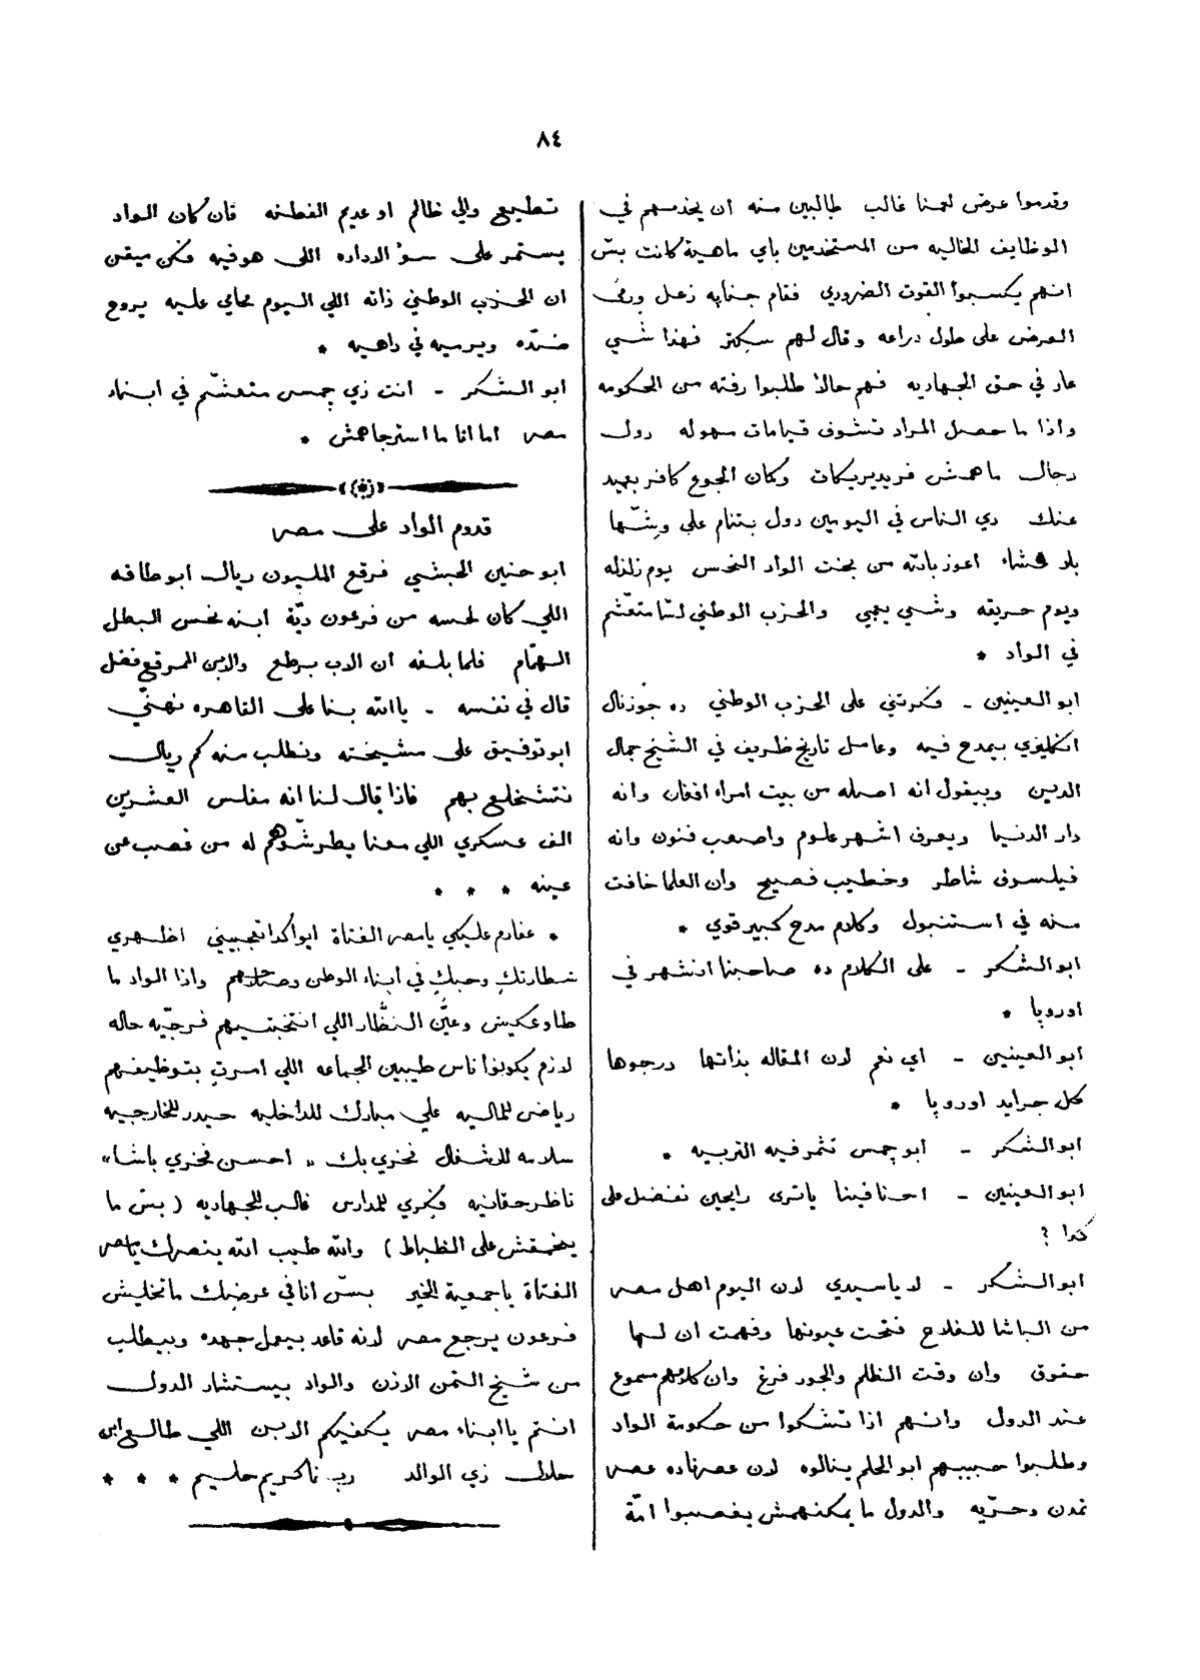 ٨٤
وقدموا عرض لعمنا غالب طالبين منه ان يخدمهم في
الوظايف الخاليه من المستخدمين باي ماهية كانت بسّ
انهم يكسبوا القوت الضروري فقام جنابه زعل ورمى
العرض على طول دراعه وقال لهم سكتر فهذا شي
عار في حق الجهاديه فهم حالاً طلبوا رفته من الحكومه
واذا ما حصل المراد تشوف قيامات مهوله دول
رجال ماهمش فريديريكات وكمان الجوع كافر بعيد
عنك دي الناس في اليومين دول بتنام على وشّها
بلا عشاء اعوز بالله من بخت الواد النحس يوم زلزله
ويوم حريقه وشي يعمي والحزب الوطني لسّا متعشّم
في الواد *
ابو العينين - فكرتني على الحزب الوطني ده جورنال
انكليزي بيمدح فيه وعامل تاريخ ظريف في الشيخ جمال
الدين وبيقول انه اصله من بيت امراء افغان وانه
دار الدنيا ويعرف اشهر علوم واصعب فنون وانه
فيلسوف شاطر وخطيب فصيح وان العلما خافت
منه في استنبول وكلام مدح كبير قوي *
ابو الشكر - على الكلام ده صاحبنا انشهر في
اوروبا *
ابو العينين - اي نعم لان المقاله بذاتها درجوها
كل جرايد اوروبا *
ابو الشكر - ابو چمس تثمر فيه التربيه *
ابو العينين - احنا فينا ياترى رايحين نفضل على
كدا ؟
ابو الشكر - لا ياسيدي لان اليوم اهل مصر
من الباشا للفلاح فتحت عيونها وفهمت ان لها
حقوق وان وقت الظلم والجور فرغ وان كلامهم مسموع
عند الدول وانهم اذا تشكوا من حكومة الواد
وطلبوا حبيبهم ابو الحلم ينالوه لان عصرنا ده عصر
تمدن وحرّيه والدول ما يمكنهمش يغصبوا امّة
تطيع والي ظالم او عديم الفطنه فان كان الواد
يستمر على سؤ الاداره اللى هو فيه فكن ميقن
ان الحزب الوطني ذاته اللي اليوم محامي عليه يروح
ضدّه ويرميه في داهيه *
ابو الشكر - انت زي چمس متعشّم في ابناء
مصر اما انا ما استرجاهمش *
قدوم الواد على مصر
ابو حنين الحبشي فرقع المليون ريال ابو طاقه
اللي كان لحسه من فرعون ديّة ابنه نخس البطل
الهمّام فلما بلغه ان الاب برطع والابن المرقع فضل
قال في نفسه - يا الله بنا على القاهره نهنّي
ابو توفيق على مشيخته ونطلب منه كم ريال
نتشخلع بهم فاذا قال لنا انه مفلس العشرين
الف عسكري اللي معنا يطرشوهم له من غصب عن
عينه * * *
* عفارم عليكي يا مصر الفتاة ايوا كدا تعجبيني اظهري
شطارتك وحبك في ابناء الوطن واذا الواد ما
طاوعكيش وعيّن النظّار اللي انتخبتيهم فرجّيه حاله
لازم يكونوا ناس طيبين الجماعه اللي امرتِ بتوظيفهم
رياض للماليه علي مبارك للداخليه حيدر للخارجيه
سلامه للاشغال فخري بك „ احسن فخري باشا „
ناظر حقانيه فكري للمدارس غالب للجهاديه ( بسّ ما
يخمقش على الظباط ) والله طيب الله ينصرك يا مصر
الفتاة يا جمعية الخير بسّ انا في عرضك ما تخليش
فرعون يرجع مصر لانه قاعد بيعمل جهده وبيطلب
من شيخ التمن الاذن والواد بيستشار الدول
انتم يا ابناء مصر يكفيكم الابن اللي طالع ابن
حلال زي الوالد ربنا كريم حليم * * *